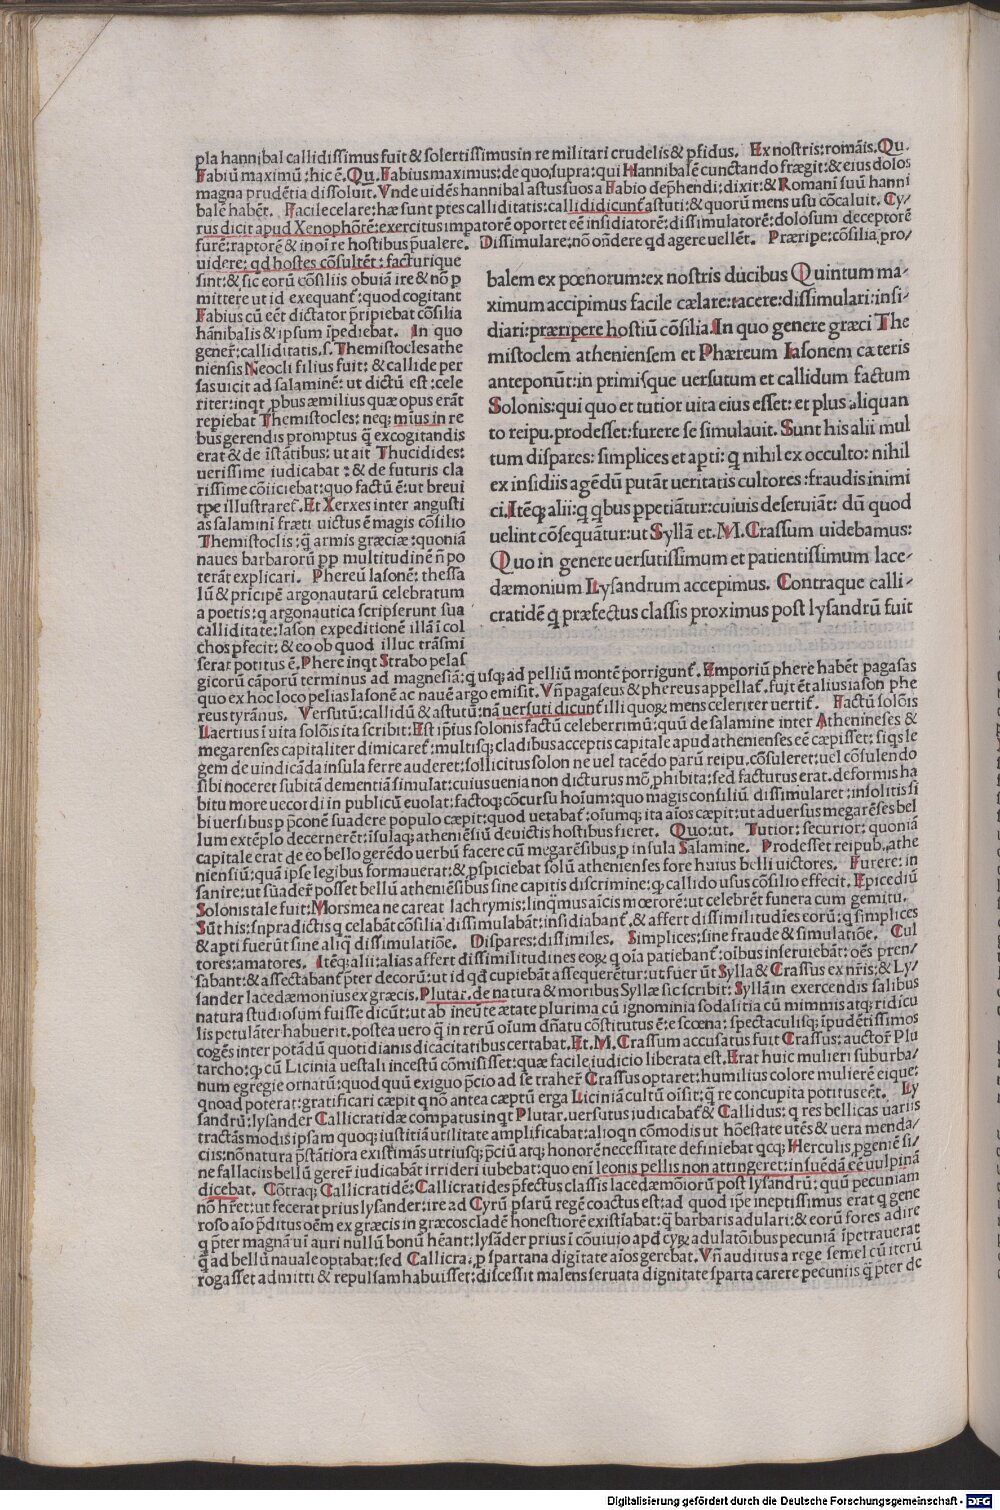 pla hannibal callidissimus fuit & solertissimus in re militari crudelis & pfidus. Ex nostris: romāis. Qu.
Fabiū maximū: hic ē. Qu. Fabius maximus: de quo supra: qui Hannibalē cunctando frægit: & eius dolos
magna prudētia dissoluit. Vnde uidēs hannibal astus suos a Fabio dep̄hendi: dixit: & Romani suū hanni
balē habēt. Facile celare: hæ sunt ptes calliditatis: callidi dicunt᷑ astuti: & quorū mens usu cōcaluit. Cy/
rus dicit apud Xenophōtē: exercitus impatorē oportet eē insidiatorē: dissimulatorē: dolosum deceptorē
furē: raptorē & in oī re hostibus pualere. Dissimulare: nō oñdere qd agere uellēt. Præripe: cōsilia pro/
uidere: qd hostes cōsultēt: facturique
sint: & sic eorū cōsiliis obuiā ire & nō p
mittere ut id exequant᷑: quod cogitant
Fabius cū eēt dictator p̄ripiebat cōsilia
hānibalis & ipsum īpediebat. In quo
gener̄: calliditatis. s. Themistocles athe
niensis Neocli filius fuit: & callide per
sas uicit ad salaminē: ut dictū est: cele
riter: inqt pbus æmilius quæ opus erāt
repiebat Themistocles: neq; mius in re
bus gerendis promptus q̄ excogitandis
erat & de īstātibus: ut ait Thucidides:
uerissime iudicabat: & de futuris cla
rissime cōiiciebat: quo factū ē: ut breui
tpe illustraret᷑. Et Xerxes inter angusti
as salamini fræti uictus ē magis cōsilio
Themistoclis: q̄ armis græciæ: quoniā
naues barbarorū pp multitudinē n̄ po
terāt explicari. Phereū Iasonē: thessa
lū & pricipē argonautarū celebratum
a poetis: q argonautica scripserunt sua
calliditate: Iason expeditionē illā ī col
chos pfecit: & eo ob quod illuc trāsmi
serat potitus ē. Phere inqt Strabo pelas
balem ex pœnorum: ex nostris ducibus Quintum ma/
ximum accipimus facile cælare: tacere: dissimulari: insi/
diari: præripere hostiū cōsilia. In quo genere græci The
mistoclem atheniensem et Phæreum Iasonem cæteris
anteponūt: in primisque uersutum et callidum factum
Solonis: qui quo et tutior uita eius esset: et plus aliquan
to reipu. prodesset: furere se simulauit. Sunt his alii mul
tum dispares: simplices et apti: q nihil ex occulto: nihil
ex insidiis agēdū putāt ueritatis cultores: fraudis inimi
ci. Itēq; alii: q qbus ppetiātur: cuiuis deseruiāt: dū quod
uelint cōsequātur: ut Syllā et. M. Crassum uidebamus:
Quo in genere uersutissimum et patientissimum lace/
dæmonium Lysandrum accepimus. Contraque calli/
cratidē q præfectus classis proximus post lysandrū fuit
gicorū cāporū terminus ad magnesiā: q usq; ad pelliū montē porrigunt᷑. Emporiū phere habēt pagasas
quo ex hoc loco pelias Iasonē ac nauē argo emisit. Vñ pagaseus & phereus appellat᷑. fuit ēt alius iason phe
reus tyrānus. Versutū: callidū & astutū: nā uersuti dicunt᷑ illi quoꝝ mens celeriter uertit᷑. Factū solōis
Laertius ī uita solōis ita scribit: Est ip̄ius solonis factū celeberrimū: quū de salamine inter Athenineses &
megarenses capitaliter dimicaret᷑: multisq; cladibus acceptis capitale apud athenienses eē cæpisset: siqs le
gem de uindicāda insula ferre auderet: sollicitus solon ne uel tacēdo parū reipu. cōsuleret: uel cōsulendo
sibi noceret subitā dementiā simulat: cuius uenia non dicturus mō phibita: sed facturus erat. deformis ha
bitu more uecordi in publicū euolat: factoq; cōcursu hoīum: quo magis consiliū dissimularet: insolitis si
bi uersibus p p̄conē suadere populo cæpit: quod uetabat᷑: oīumq; ita aīos cæpit: ut aduersus megarēses bel
lum extēplo decernerēt: īsulaq; atheniēsiū deuictis hostibus fieret. Quo: ut. Tutior: securior: quoniā
capitale erat de eo bello gerēdo uerbū facere cū megarēsibus p insula Salamine. Prodesset reipub. athe
niensiū: quā ipse legibus formauerat: & pspiciebat solū athenienses fore huius belli uictores. Furere: in
sanire: ut suader̄ posset bellū atheniēsibus sine capitis discrimine: q callido usus cōsilio effecit. Epicediū
Solonis tale fuit: Mors mea ne careat lachrymis: linqmus aīcis mœrorē: ut celebrēt funera cum gemitu.
Sūt his: supradictis q celabāt cōsilia dissimulabāt: insidiabant᷑, & affert dissimilitudīes eorū: q simplices
& apti fuerūt sine aliq dissimulatiōe. Dispares: dissimiles. Simplices: sine fraude & simulatiōe. Cul
tores: amatores. Itēq; alii: alias affert dissimilitudines eoꝝ q oīa patiebant᷑: oībus inseruiebāt: oēs pren/
sabant: & assectabant᷑ pter decorū: ut id qd cupiebāt assequerētur: ut fuerūt Sylla & Crassus ex nr̄is: & Ly/
sander lacedæmonius ex græcis. Plutar. de natura & moribus Syllæ sic scribit: Syllā in exercendis salibus
natura studiosum fuisse dicūt: ut ab ineūte ætate plurima cū ignominia sodalitia cū mimmis atq; ridicu
lis petulāter habuerit. postea uero q in rerū oīum dn̄atu cōstitutus ē: e scœna: spectaculisq; īpudētissimos
cogēs inter potādū quotidianis dicacitatibus certabat. Et. M. Crassum accusatus fuit Crassus: auctor̄ Plu
tarcho: q cū Licinia uestali incestū cōmisisset: quæ facile iudicio liberata est. Erat huic mulieri suburba/
num egregie ornatū: quod quū exiguo p̄cio ad se traher̄ Crassus optaret: humilius colore mulierē eique:
qnoad poterat: gratificari cæpit q nō antea cæptū erga Liciniā cultū oīsit: q̄ re concupita potitus eēt. Ly
sandrū: lysander Callicratidæ compatus inqt Plutar. uersutus iudicabat᷑ & Callidus: q res bellicas uariis
tractās modis ipsam quoq; iustitiā utilitate amplificabat: alioqn cōmodis ut hōestate utēs & uera menda/
ciis: nō natura p̄stātiora existimās utriusq; p̄ciū atq; honorē necessitate definiebat qcq; Herculis pgeniē si/
ne fallaciis bellū gerer̄ iudicabāt irrideri iubebat: quo enī leonis pellis non attingeret: insuēdā eē uulpinā
dicebat. Cōtraq; Callicratidē: Callicratides p̄fectus classis lacedæmōiorū post lysandrū: quū pecuniam
nō hr̄et: ut fecerat prius lysander: ire ad Cyrū psarū regē coactus est: ad quod ip̄e ineptissimus erat q gene
roso aīo p̄ditus oēm ex græcis in græcos cladē honestiorē existīabat: q̄ barbaris adulari: & eorū fores adire
q pter magnā uī auri nullū bonū hēant: lysāder prius ī cōuiuio apd cyꝝ adulatōibus pecuniā īpetrauerat
q̄ ad bellū nauale optabat: sed Callicra. p spartana digītate aīos gerebat. Vñ auditus a rege semel cū iterū
rogasset admitti & repulsam habuisset: discessit malens seruata dignitate sparta carere pecuniis q̄ pter de
Digitalisierung gefördert durch die Deutsche Forschungsgemeinschaft - DFG